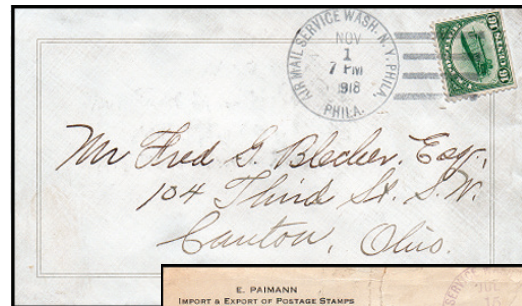 AIR MAIL SERVICE WASH. N.Y. PHILA.
NOV
1
7 PM
1918
PHILA.
16 CENTS 16
Mr Fred G. Blecher. Esq.,
104 Third St. S.W.
Canton, Ohio.
E. PAIMANN
IMPORT & EXPORT OF POSTAGE STAMPS